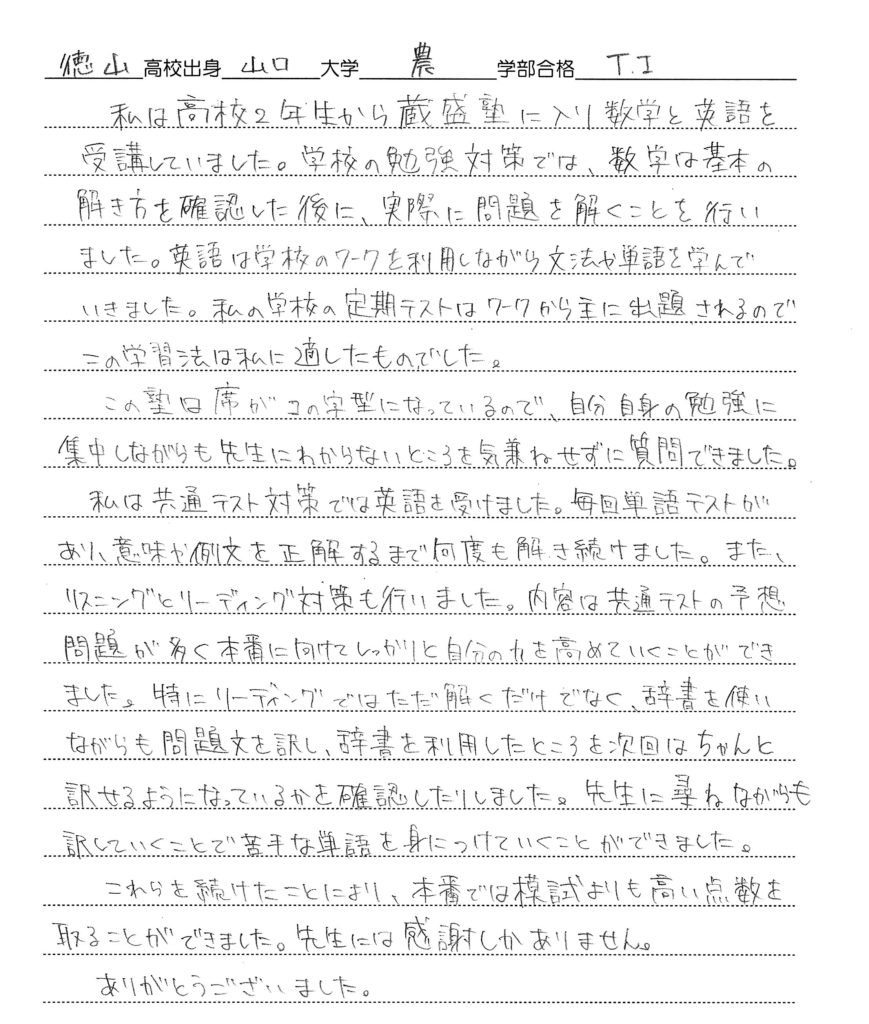 徳山高校出身 山口大学 農 学部合格 T.I
私は高校2年生から蔵盛塾に入り数学と英語を
受講していました。学校の勉強対策では、数学は基本の
解き方を確認した後に、実際に問題を解くことを行い
ました。英語は学校のワークを利用しながら文法や単語を学んで
いきました。私の学校の定期テストはワークから主に出題されるので
この学習法は私に適したものでした。
この塾は席がコの字型になっているので、自分自身の勉強に
集中しながらも先生にわからないところを気兼ねせずに質問できました。
私は共通テスト対策では英語を受けました。毎回単語テストが
あり、意味や例文を正解するまで何度も解き続けました。また、
リスニングとリーディング対策も行いました。内容は共通テストの予想
問題が多く本番に向けてしっかりと自分の力を高めていくことができ
ました。特にリーディングではただ解くだけでなく、辞書を使い
ながらも問題文を訳し、辞書を利用したところを次回はちゃんと
訳せるようになっているかを確認したりしました。先生に尋ねながらも
訳していくことで苦手な単語を身につけていくことができました。
これらを続けたことにより、本番では模試よりも高い点数を
取ることができました。先生には感謝しかありません。
ありがとうございました。